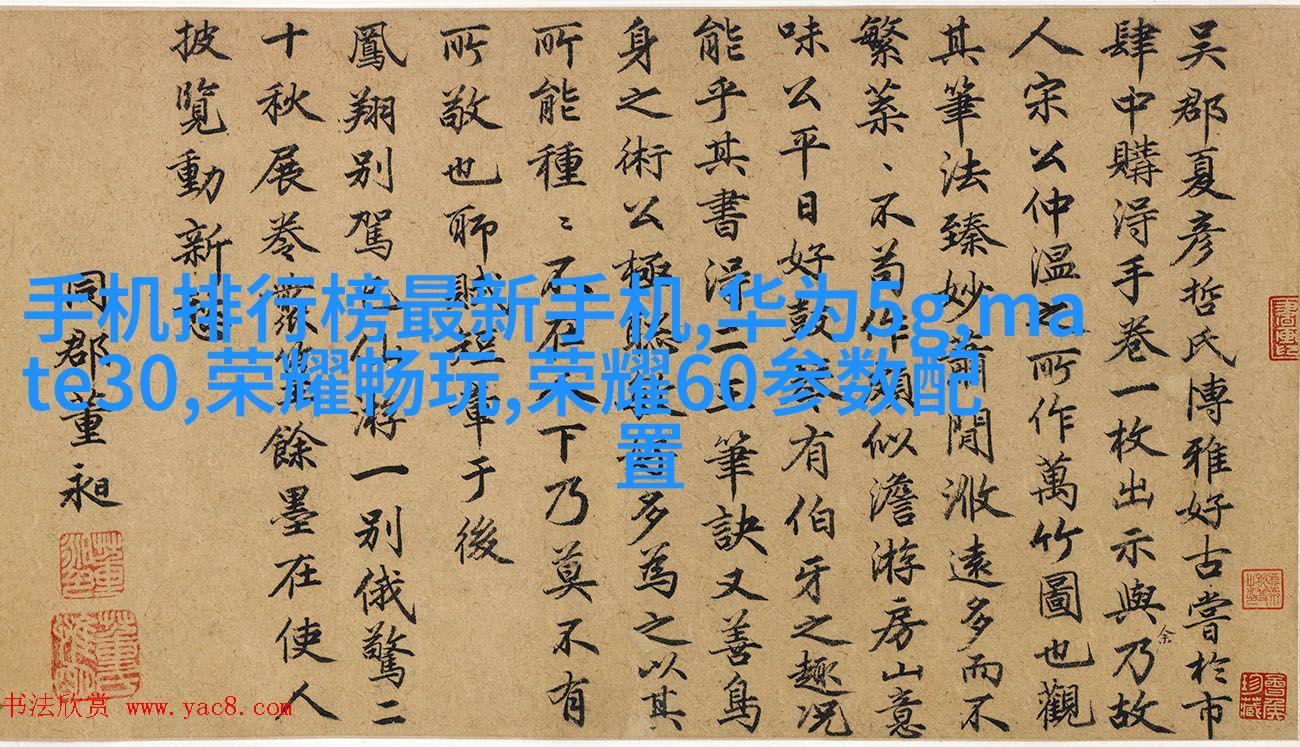 吳郡夏彥哲氏博雅好古嘗於市
肆中購得手卷一枚出示與余乃故
人宋公仲溫之所作萬竹圖也觀
其筆法臻妙蕭閒遠多而不
繁不苟作頗似澹游房山意
味公平日好鼓琴有伯牙之趣況
能乎其書得二王筆訣又善鳥
身之術公極多為之以其
所能種〻不在人下乃莫不有
所敬也聊賦章于後
鳳翔別駕游一別俄驚二
十秋展卷無餘墨在使人
披覽動新愁
同郡董昶
手机排行榜最新手机,华为5g,ma
te30,荣耀畅玩,荣耀60参数配
置
书法欣赏 www.yac8.com